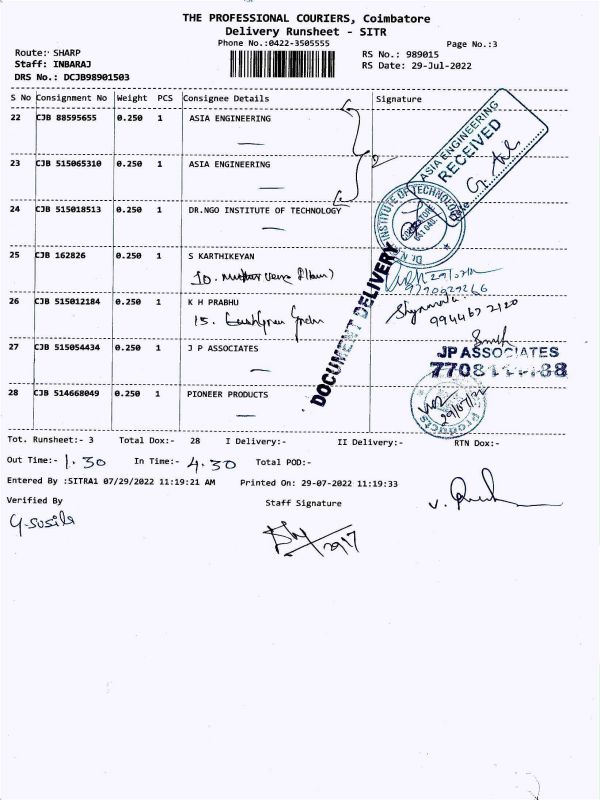 THE PROFESSIONAL COURIERS, Coimbatore
Delivery Runsheet - SITR
Phone No.:0422-3505555
Page No.:3
Route: SHARP
RS No.: 989015
Staff: INBARAJ
RS Date: 29-Jul-2022
DRS No.: DCJB98901503
S No Consignment No Weight PCS Consignee Details Signature
22 CJB 88595655 0.250 1 ASIA ENGINEERING
ASIA ENGINEERING
RECEIVED
Date
2
23 CJB 515065310 0.250 1 ASIA ENGINEERING
24 CJB 515018513 0.250 1 DR.NGO INSTITUTE OF TECHNOLOGY
INSTITUTE OF TECHNOLOGY
DOCUMENT DELIVERY
25 CJB 162826 0.250 1 S KARTHIKEYAN
26 CJB 515012184 0.250 1 K H PRABHU
15.
994467 2120
27 CJB 515054434 0.250 1 J P ASSOCIATES
JP ASSOCIATES
28 CJB 514668049 0.250 1 PIONEER PRODUCTS
29/07/22
Products
Tot. Runsheet:- 3 Total Dox:- 28 I Delivery:- II Delivery:- RTN Dox:-
Out Time:- 1.30 In Time:- 4.30 Total POD:-
Entered By :SITRA1 07/29/2022 11:19:21 AM Printed On: 29-07-2022 11:19:33
Verified By Staff Signature
G.Susila
29/7